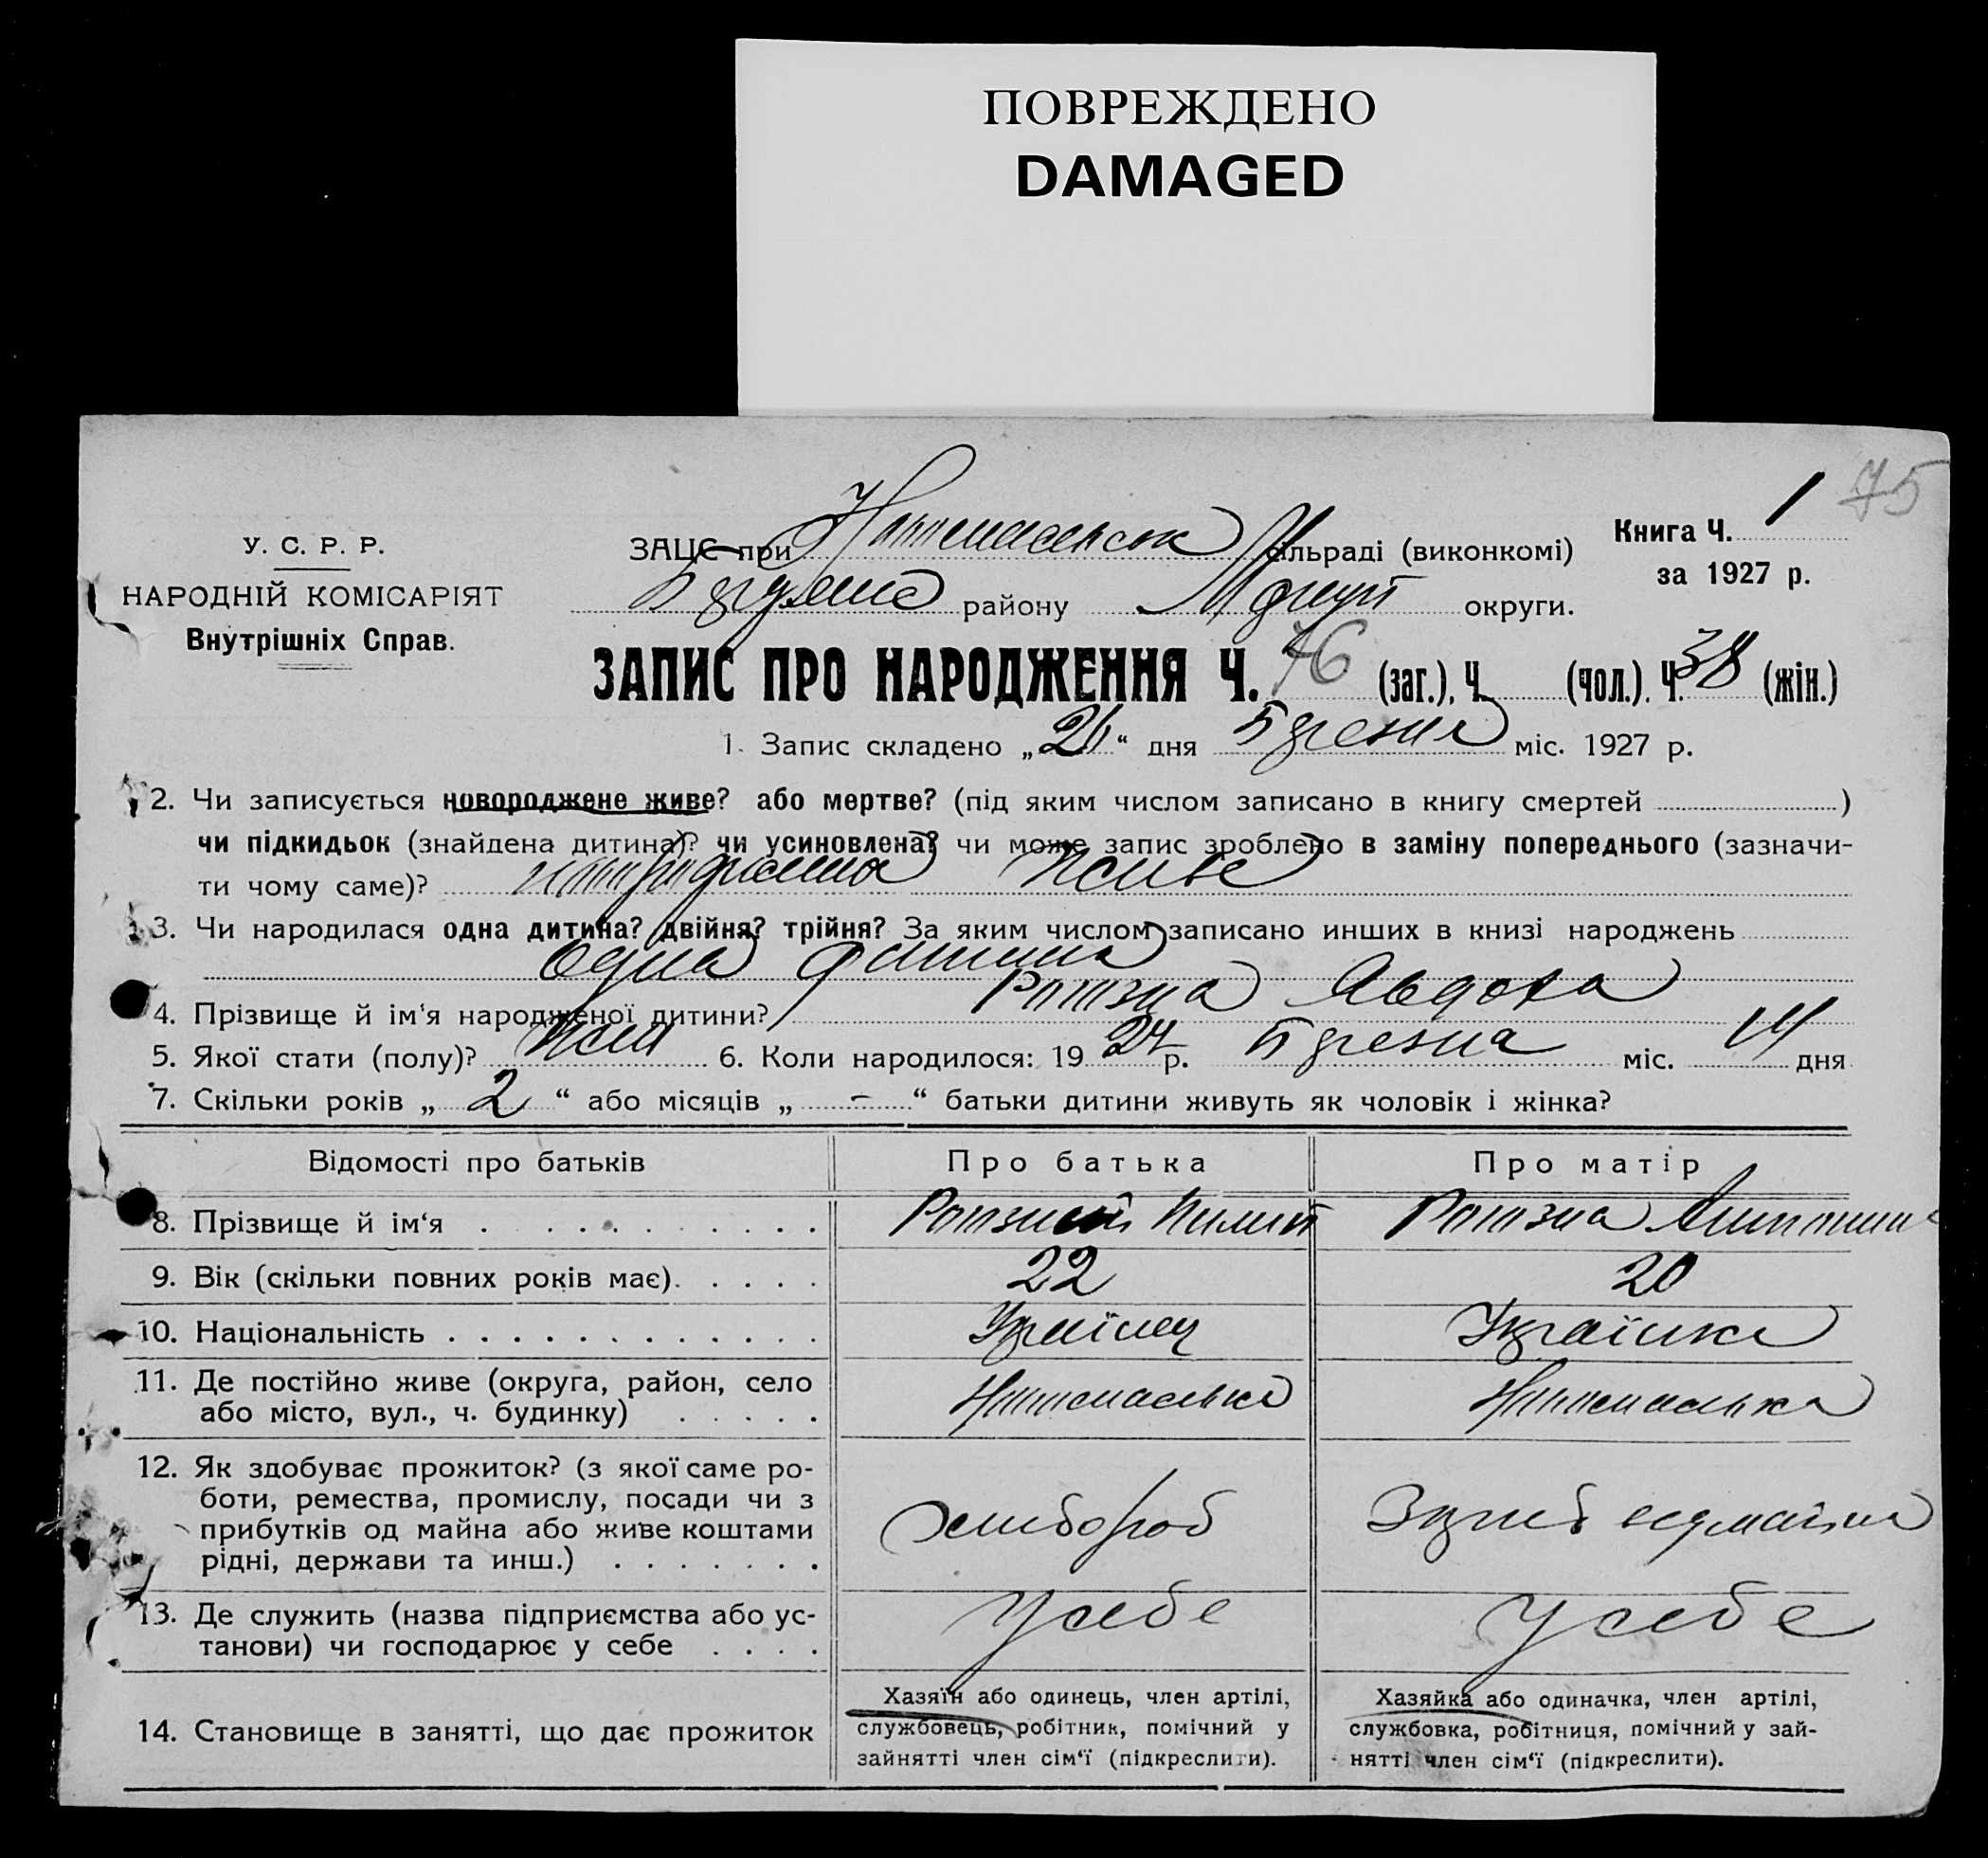 ПОВРЕЖДЕНО
DAMAGED
75
У. С. Р. Р.
НАРОДНІЙ КОМІСАРІЯТ
Внутрішніх Справ.
ЗАЦС при сільраді (виконкомі)
району округи.
Книга Ч. 1
за 1927 р.
ЗАПИС ПРО НАРОДЖЕННЯ Ч. 76 (заг.), Ч. (чол.). Ч. 38 (жін.)
1. Запис складено „26“ дня Березня міс. 1927 р.
2. Чи записується новороджене живе? або мертве? (під яким числом записано в книгу смертей )
чи підкидьок (знайдена дитина)? чи усиновлена? чи може запис зроблено в заміну попереднього (зазначи-
ти чому саме)? живе
3. Чи народилася одна дитина? двійня? трійня? За яким числом записано инших в книзі народжень
одна дитина
4. Прізвище й ім‘я народженої дитини? Ротзна Явдоха
5. Якої стати (полу)? жен 6. Коли народилося: 1927 р. Березна міс. 14 дня
7. Скільки років „ 2 “ або місяців „ - “ батьки дитини живуть як чоловік і жінка?
Відомості про батьків Про батька Про матір
8. Прізвище й ім‘я . . . . . . . . . Пилип Ротзна
9. Вік (скільки повних років має). . . . . 22 20
10. Національність . . . . . . . . . . . . Українец Українка
11. Де постійно живе (округа, район, село
або місто, вул., ч. будинку) . . . . .
12. Як здобуває прожиток? (з якої саме ро-
боти, ремества, промислу, посади чи з
прибутків од майна або живе коштами
рідні, держави та инш.) . . . . . . .
хлибороб
13. Де служить (назва підприємства або ус-
танови) чи господарює у себе . . . .
У себе У себе
14. Становище в занятті, що дає прожиток
Хазяїн або одинець, член артілі,
службовець, робітник, помічний у
зайнятті член сім‘ї (підкреслити).
Хазяйка або одиначка, член артілі,
службовка, робітниця, помічний у зай-
нятті член сім‘ї (підкреслити).